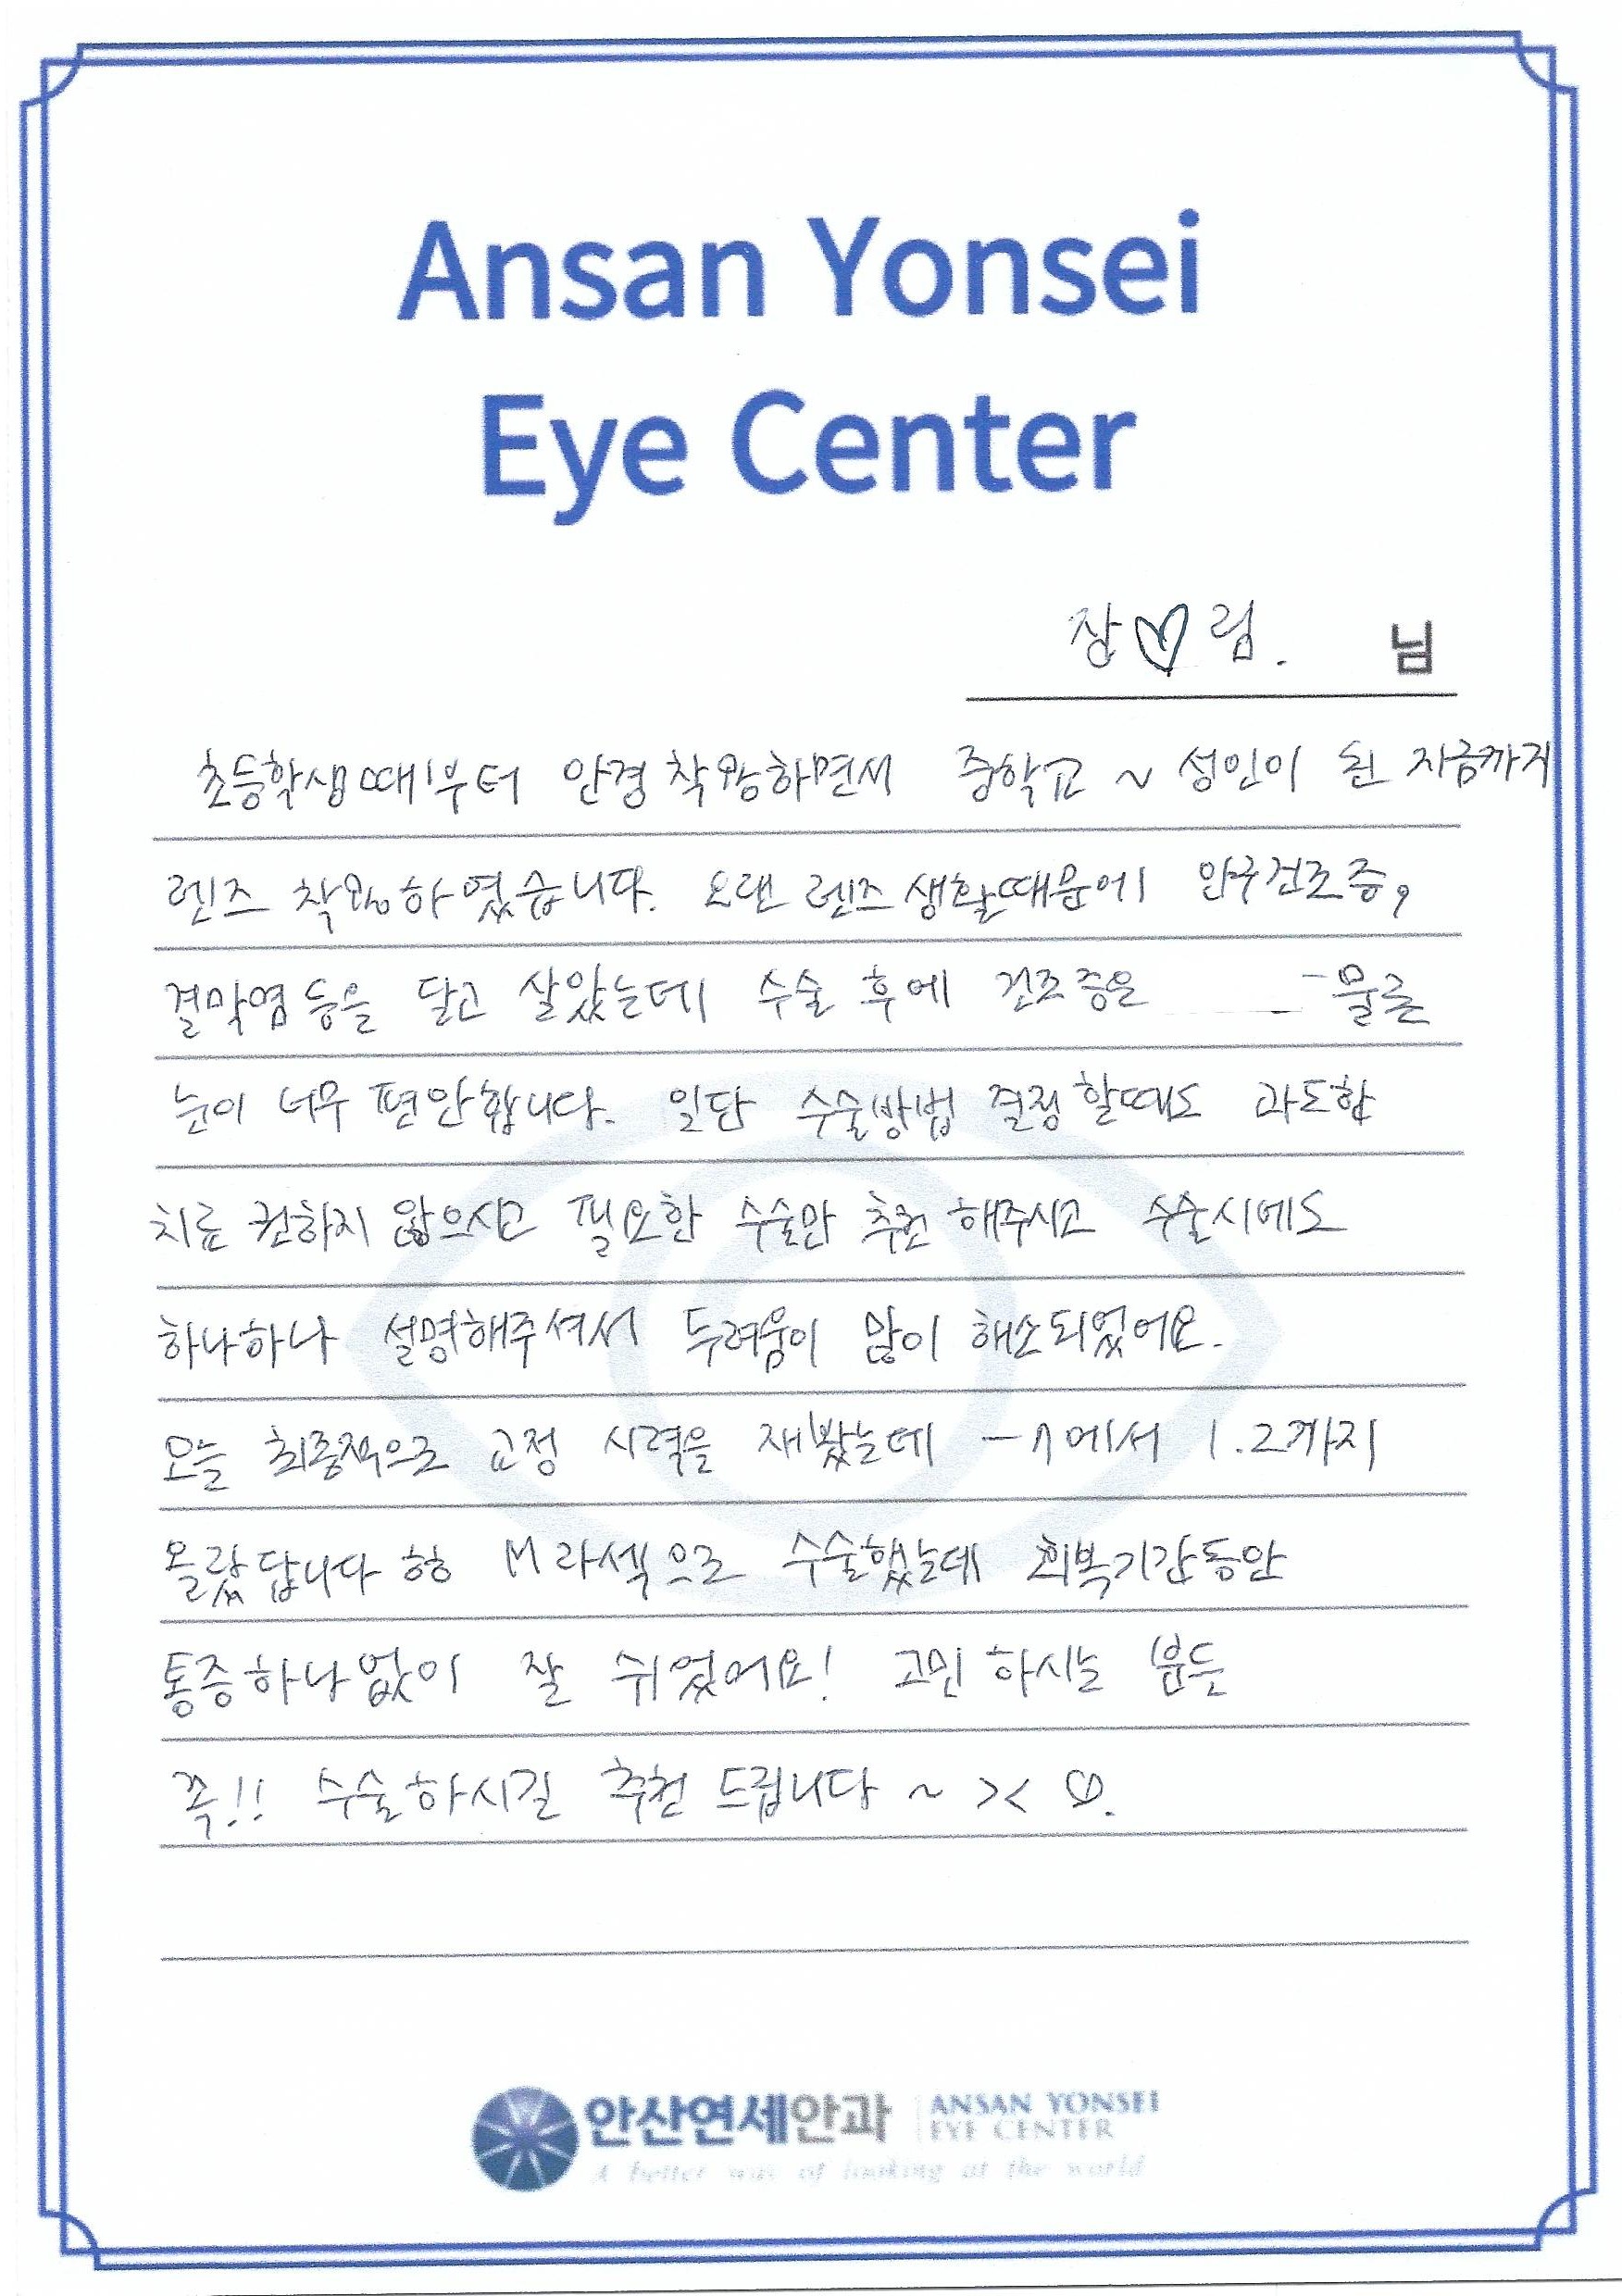 Ansan Yonsei
Eye Center
장♡림. 님
초등학생때부터 안경 착용하면서 중학교 ~ 성인이 된 지금까지
렌즈 착용하였습니다. 오랜 렌즈 생활때문에 안구건조증,
결막염 등을 달고 살았는데 수술 후에 건조증은 물론
눈이 너무 편안합니다. 일단 수술방법 결정 할때도 과도한
치료 권하지 않으시고 필요한 수술만 추천 해주시고 수술시에도
하나하나 설명해주셔서 두려움이 많이 해소되었어요.
오늘 최종적으로 교정 시력을 재봤는데 -7에서 1.2까지
올랐답니다 ㅎㅎ M라섹으로 수술했는데 회복기간동안
통증하나없이 잘 쉬었어요! 고민 하시는 분들
꼭!! 수술하시길 추천 드립니다 ~ >< ♡.
안산연세안과 ANSAN YONSEI
EYE CENTER
A better way of looking at the world